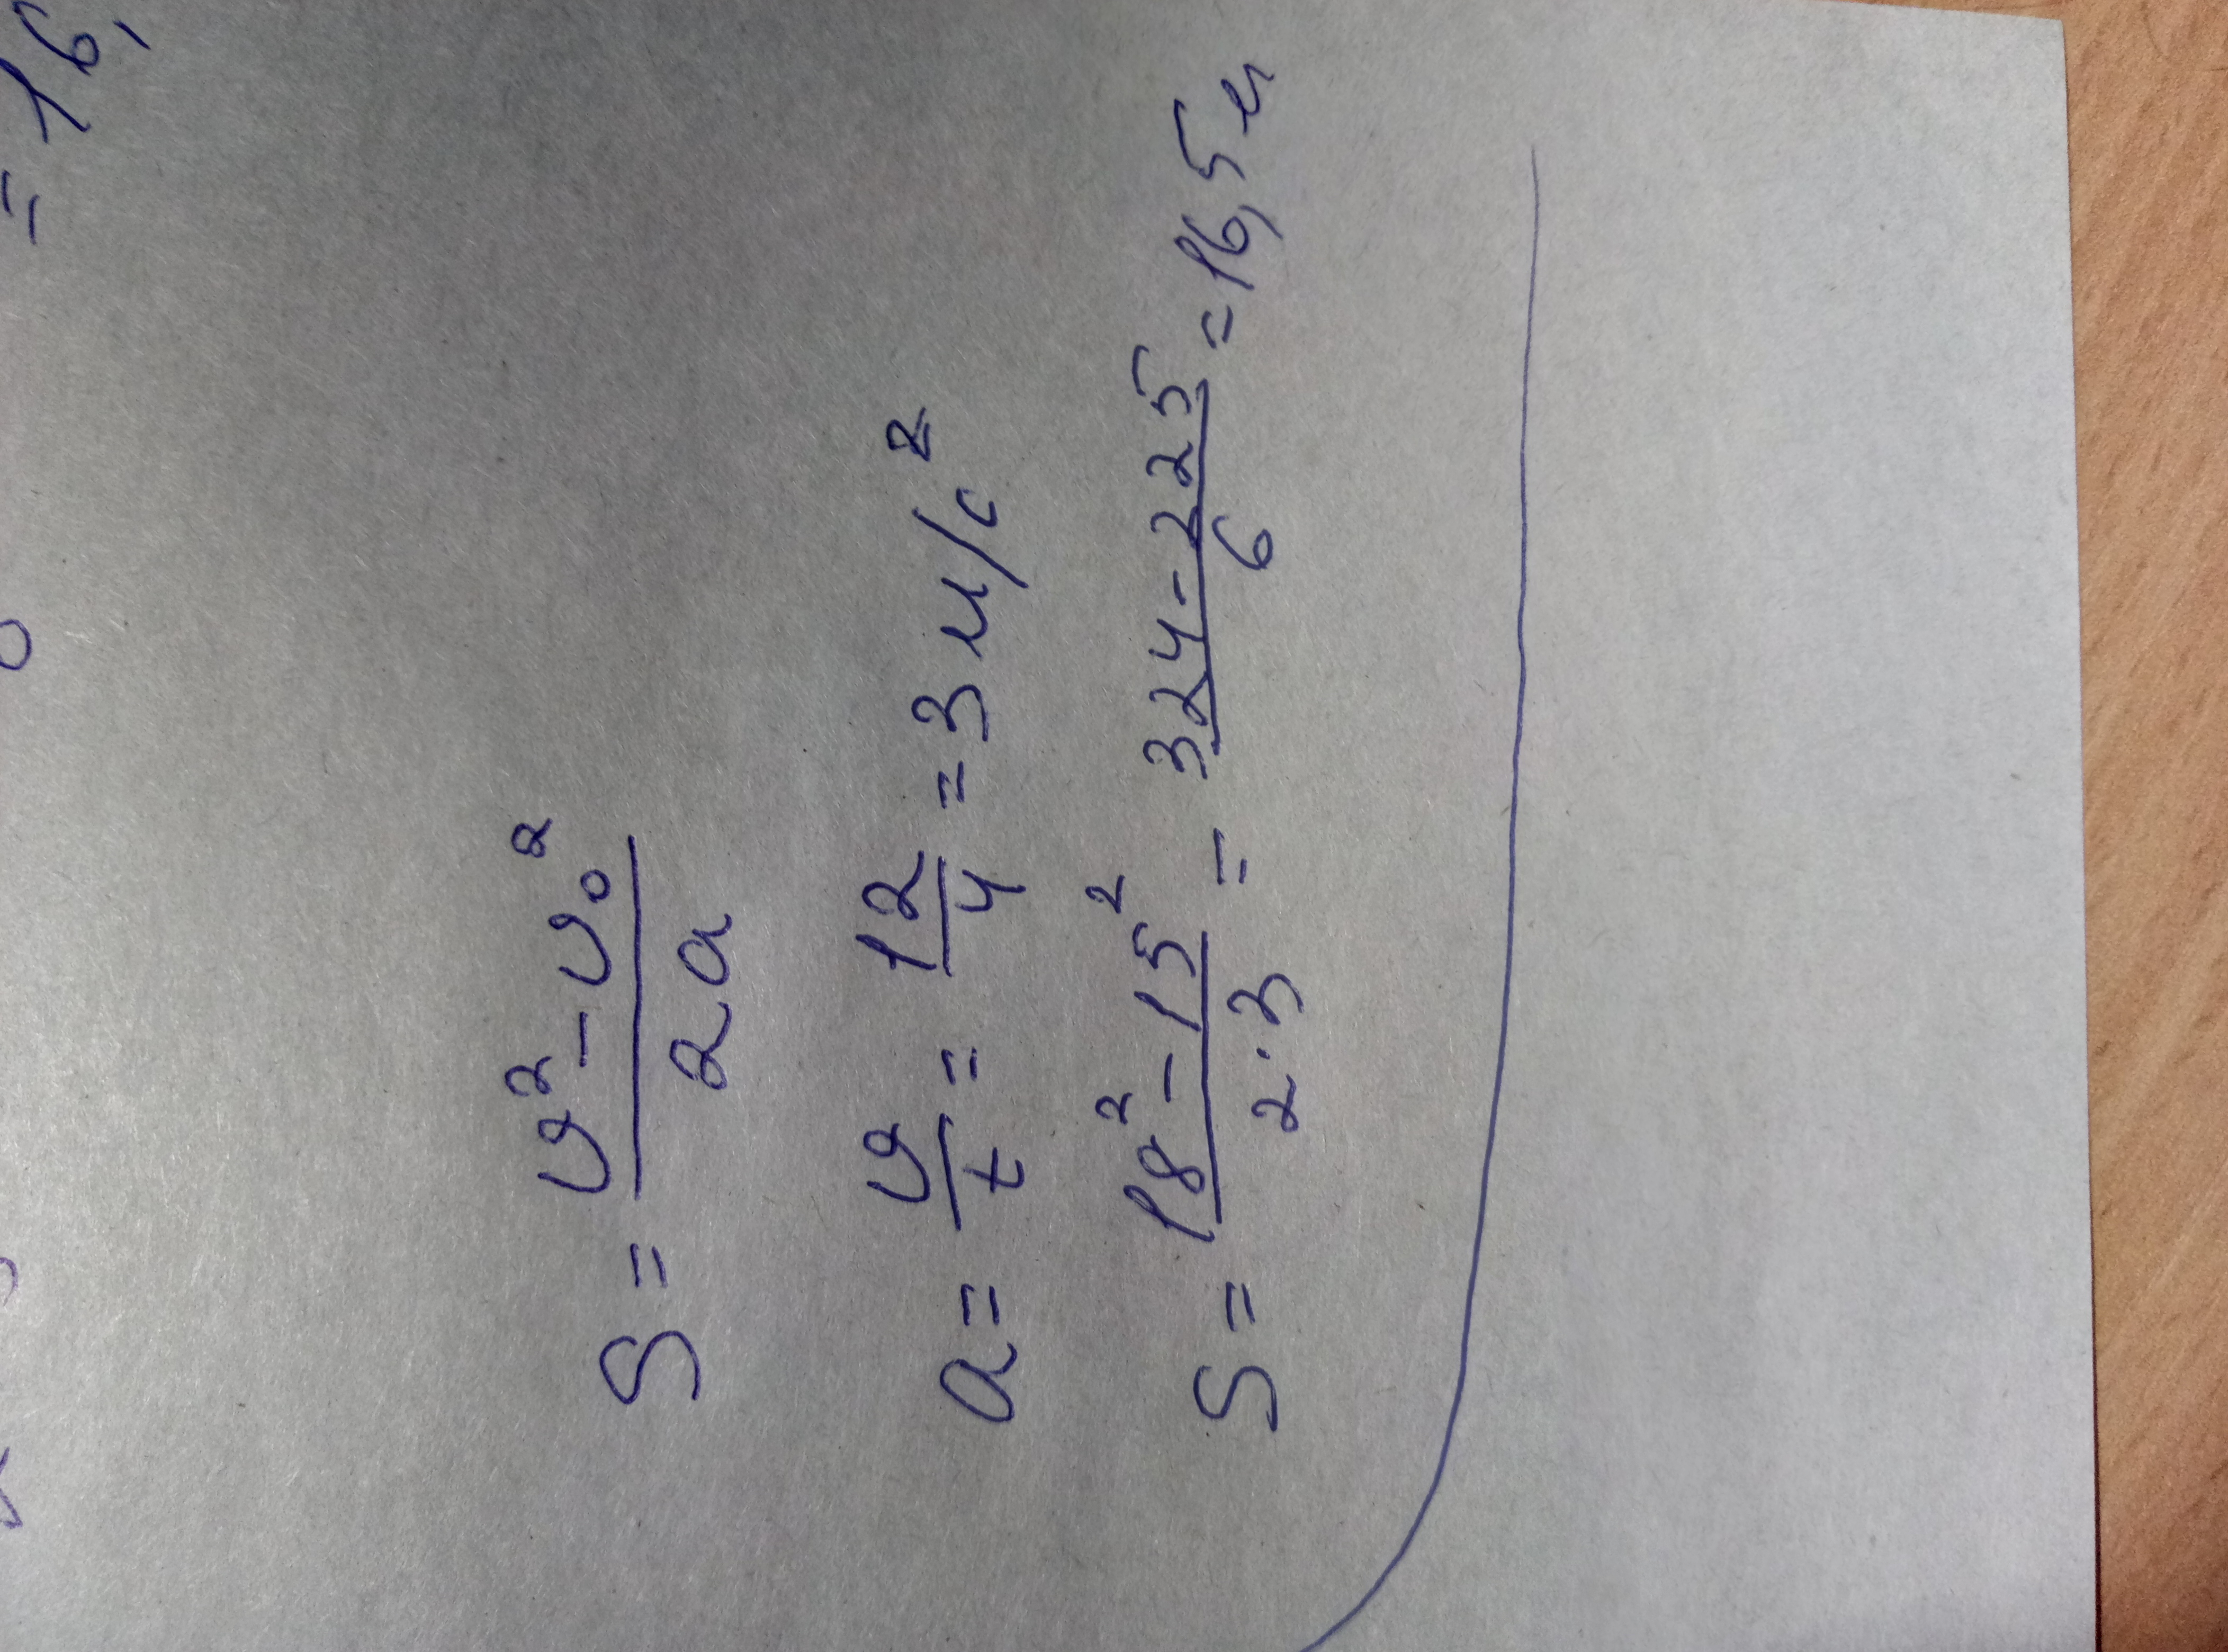 = 16,
S = (v² - v₀²) / 2a
a = v/t = 12/4 = 3 м/с²
S = (18² - 15²) / (2·3) = (324 - 225) / 6 = 16,5 м